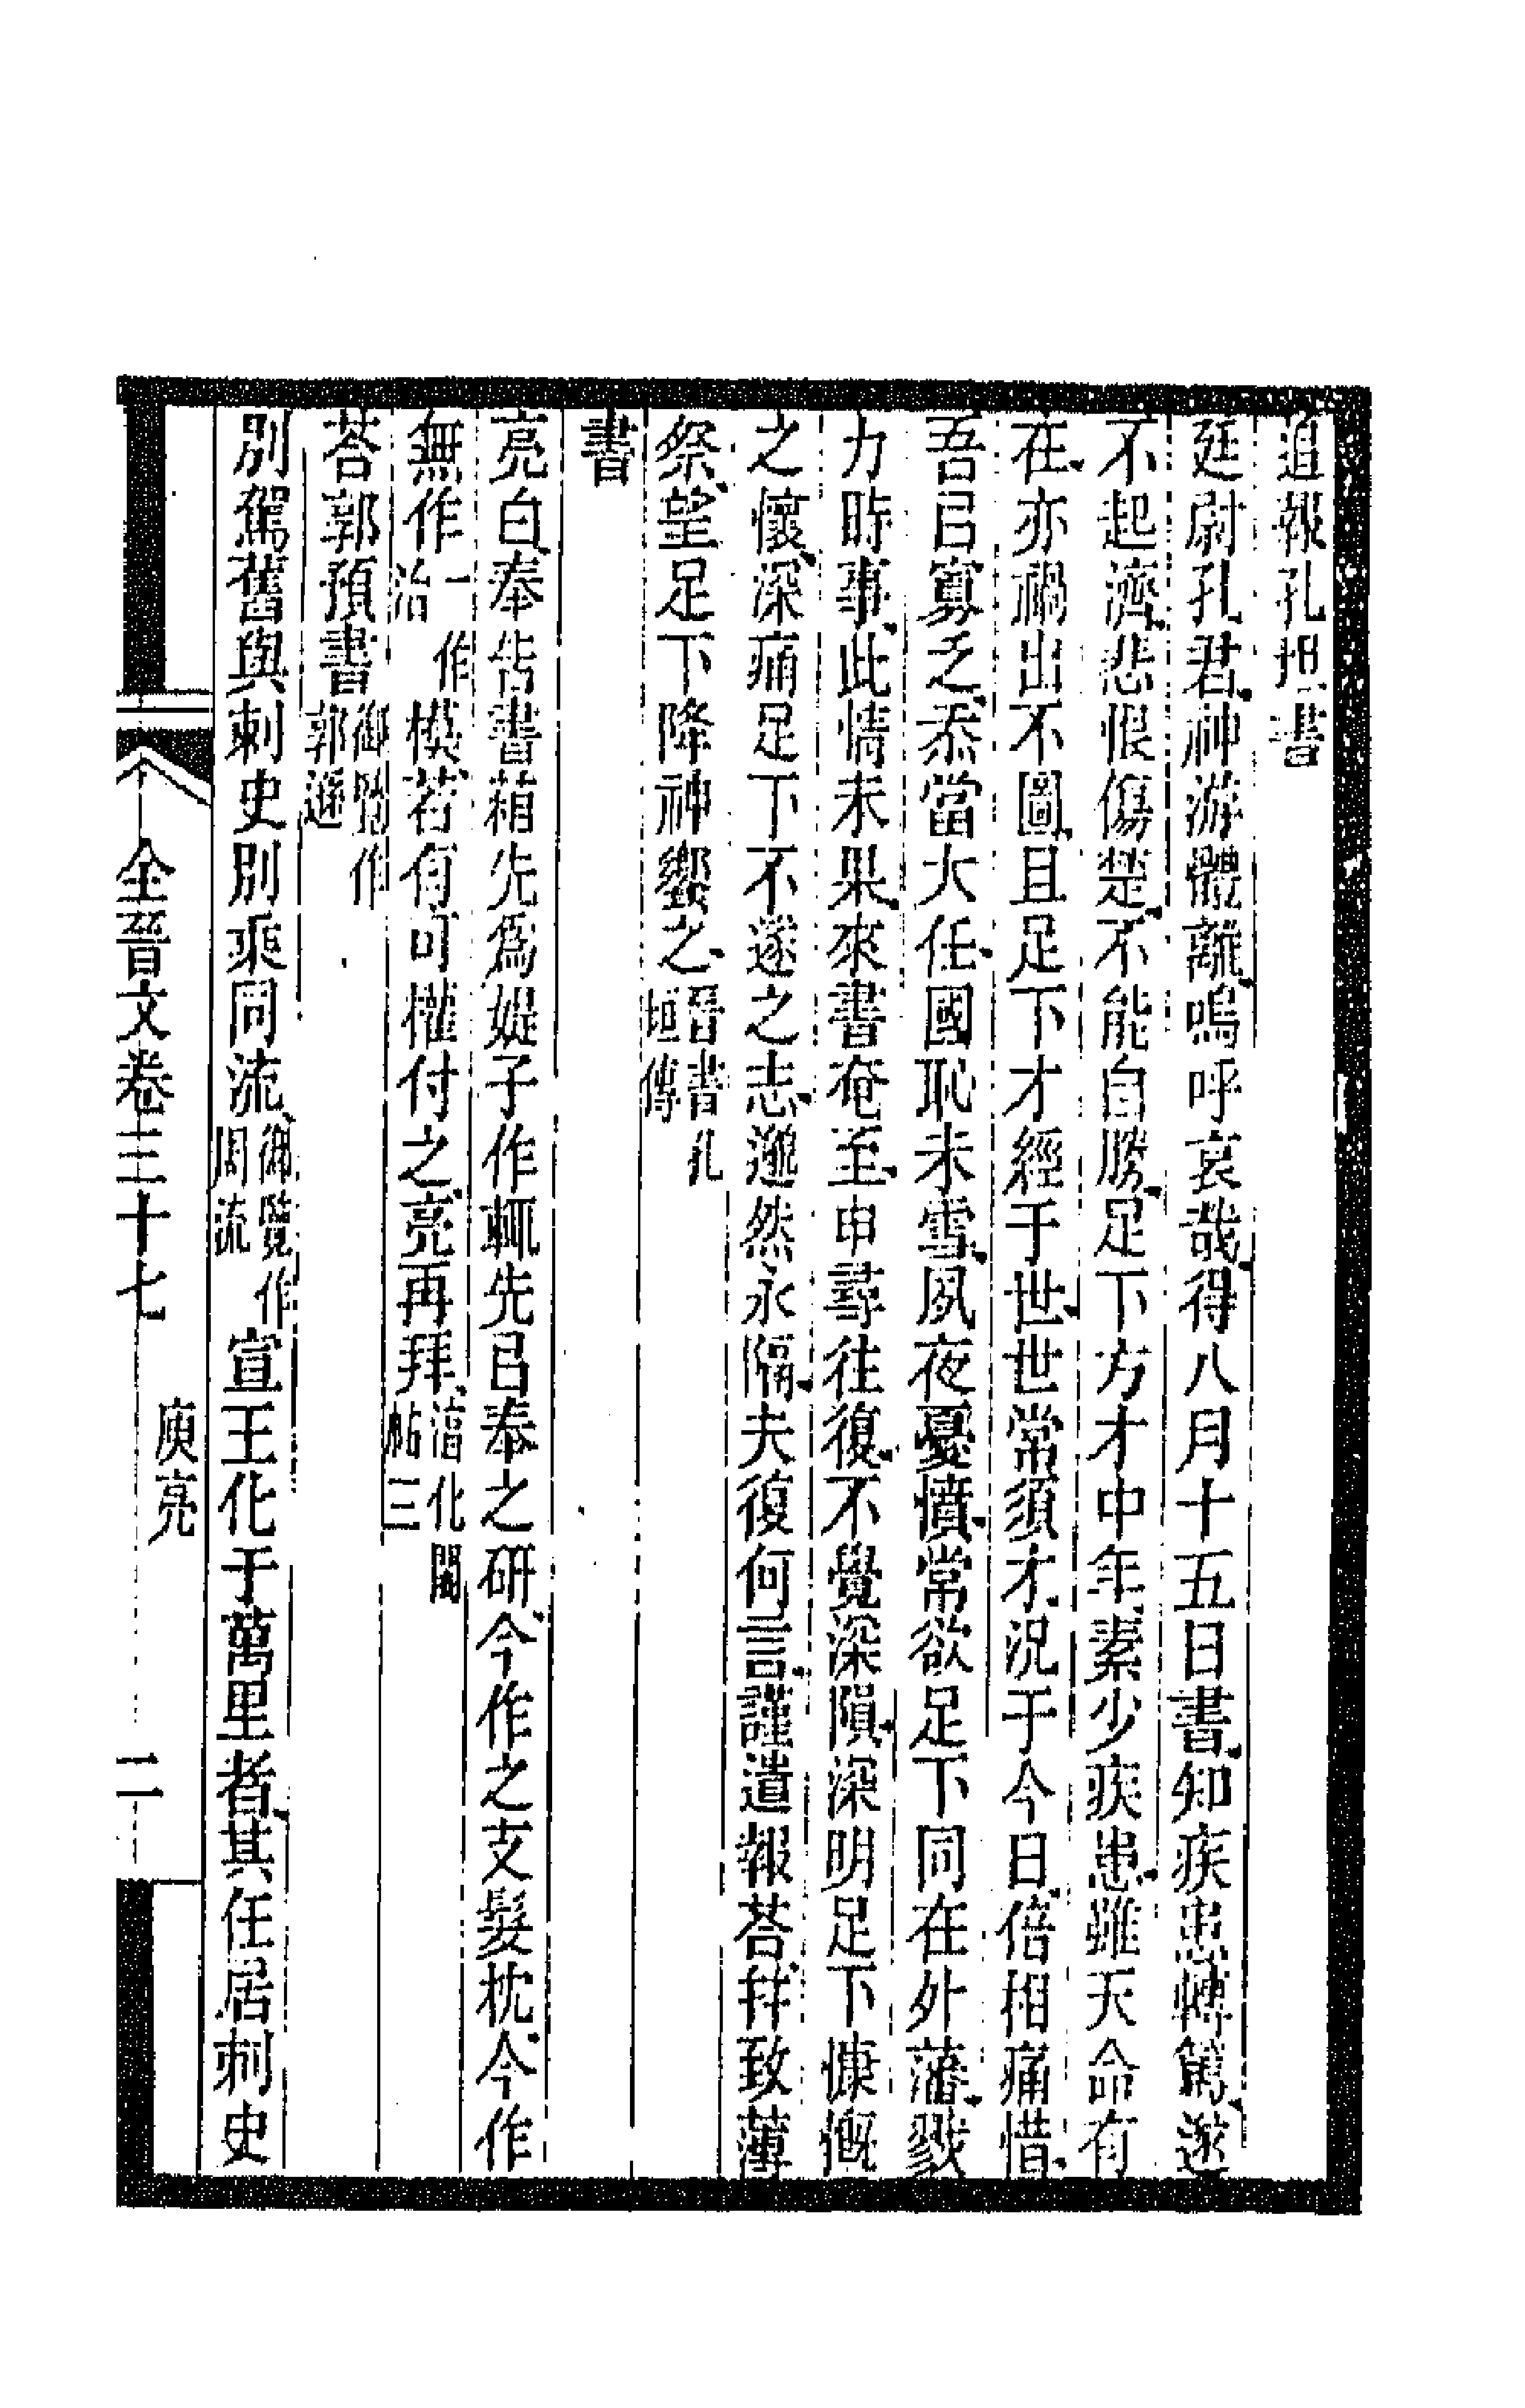 追報孔坦書
廷尉孔君神游體離嗚呼哀哉得八月十五日書知疾患轉篤遂
不起濟悲恨傷楚不能自勝足下方才中年素少疾患雖天命有
在亦禍出不圖且足下才經于世世常須才況于今日倍相痛惜
吾㠯寡乏忝當大任國恥未雪夙夜憂憤常欲足下同在外藩戮
力時事此情未果來書奄至申尋往復不覺深隕深明足下慷慨
之懷深痛足下不遂之志邈然永隔夫復何言謹遣報荅并致薄
祭望足下降神饗之晉書孔坦傳
書
亮白奉告書箱先爲媞子作輒先㠯奉之研今作之支髮枕今作
無作一作治模若有可權付之亮再拜淳化閣帖三
荅郭預書御覽作郭遜
別駕舊與刺史別乘同流御覽作周流宣王化于萬里者其任居刺史
全晉文卷三十七 庾亮 二